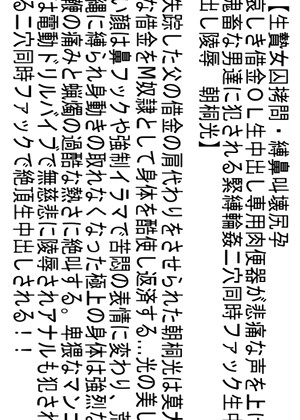 【生贄女囚拷問・縛鼻叫壊尻孕
哀しき借金ＯＬ生中出し専用肉便器が悲痛な声を上げ
鬼畜な男達に犯される緊縛輪姦二穴同時ファック生中
出し陵辱　朝桐光】
失踪した父の借金の肩代わりをさせられた朝桐光は莫大
な借金をＭ奴隷として身体を酷使し返済する…光の美し
い顔は鼻フックや強制イラマで苦悶の表情に変わり、荒
縄に縛られ身動きの取れなくなった極上の身体は強烈な
鞭の痛みと蝋燭の過酷な熱さに絶叫する。卑猥なマンコ
は電動ドリルバイブで無慈悲に陵辱されアナルも犯され
る二穴同時ファックで絶頂生中出しされる！！